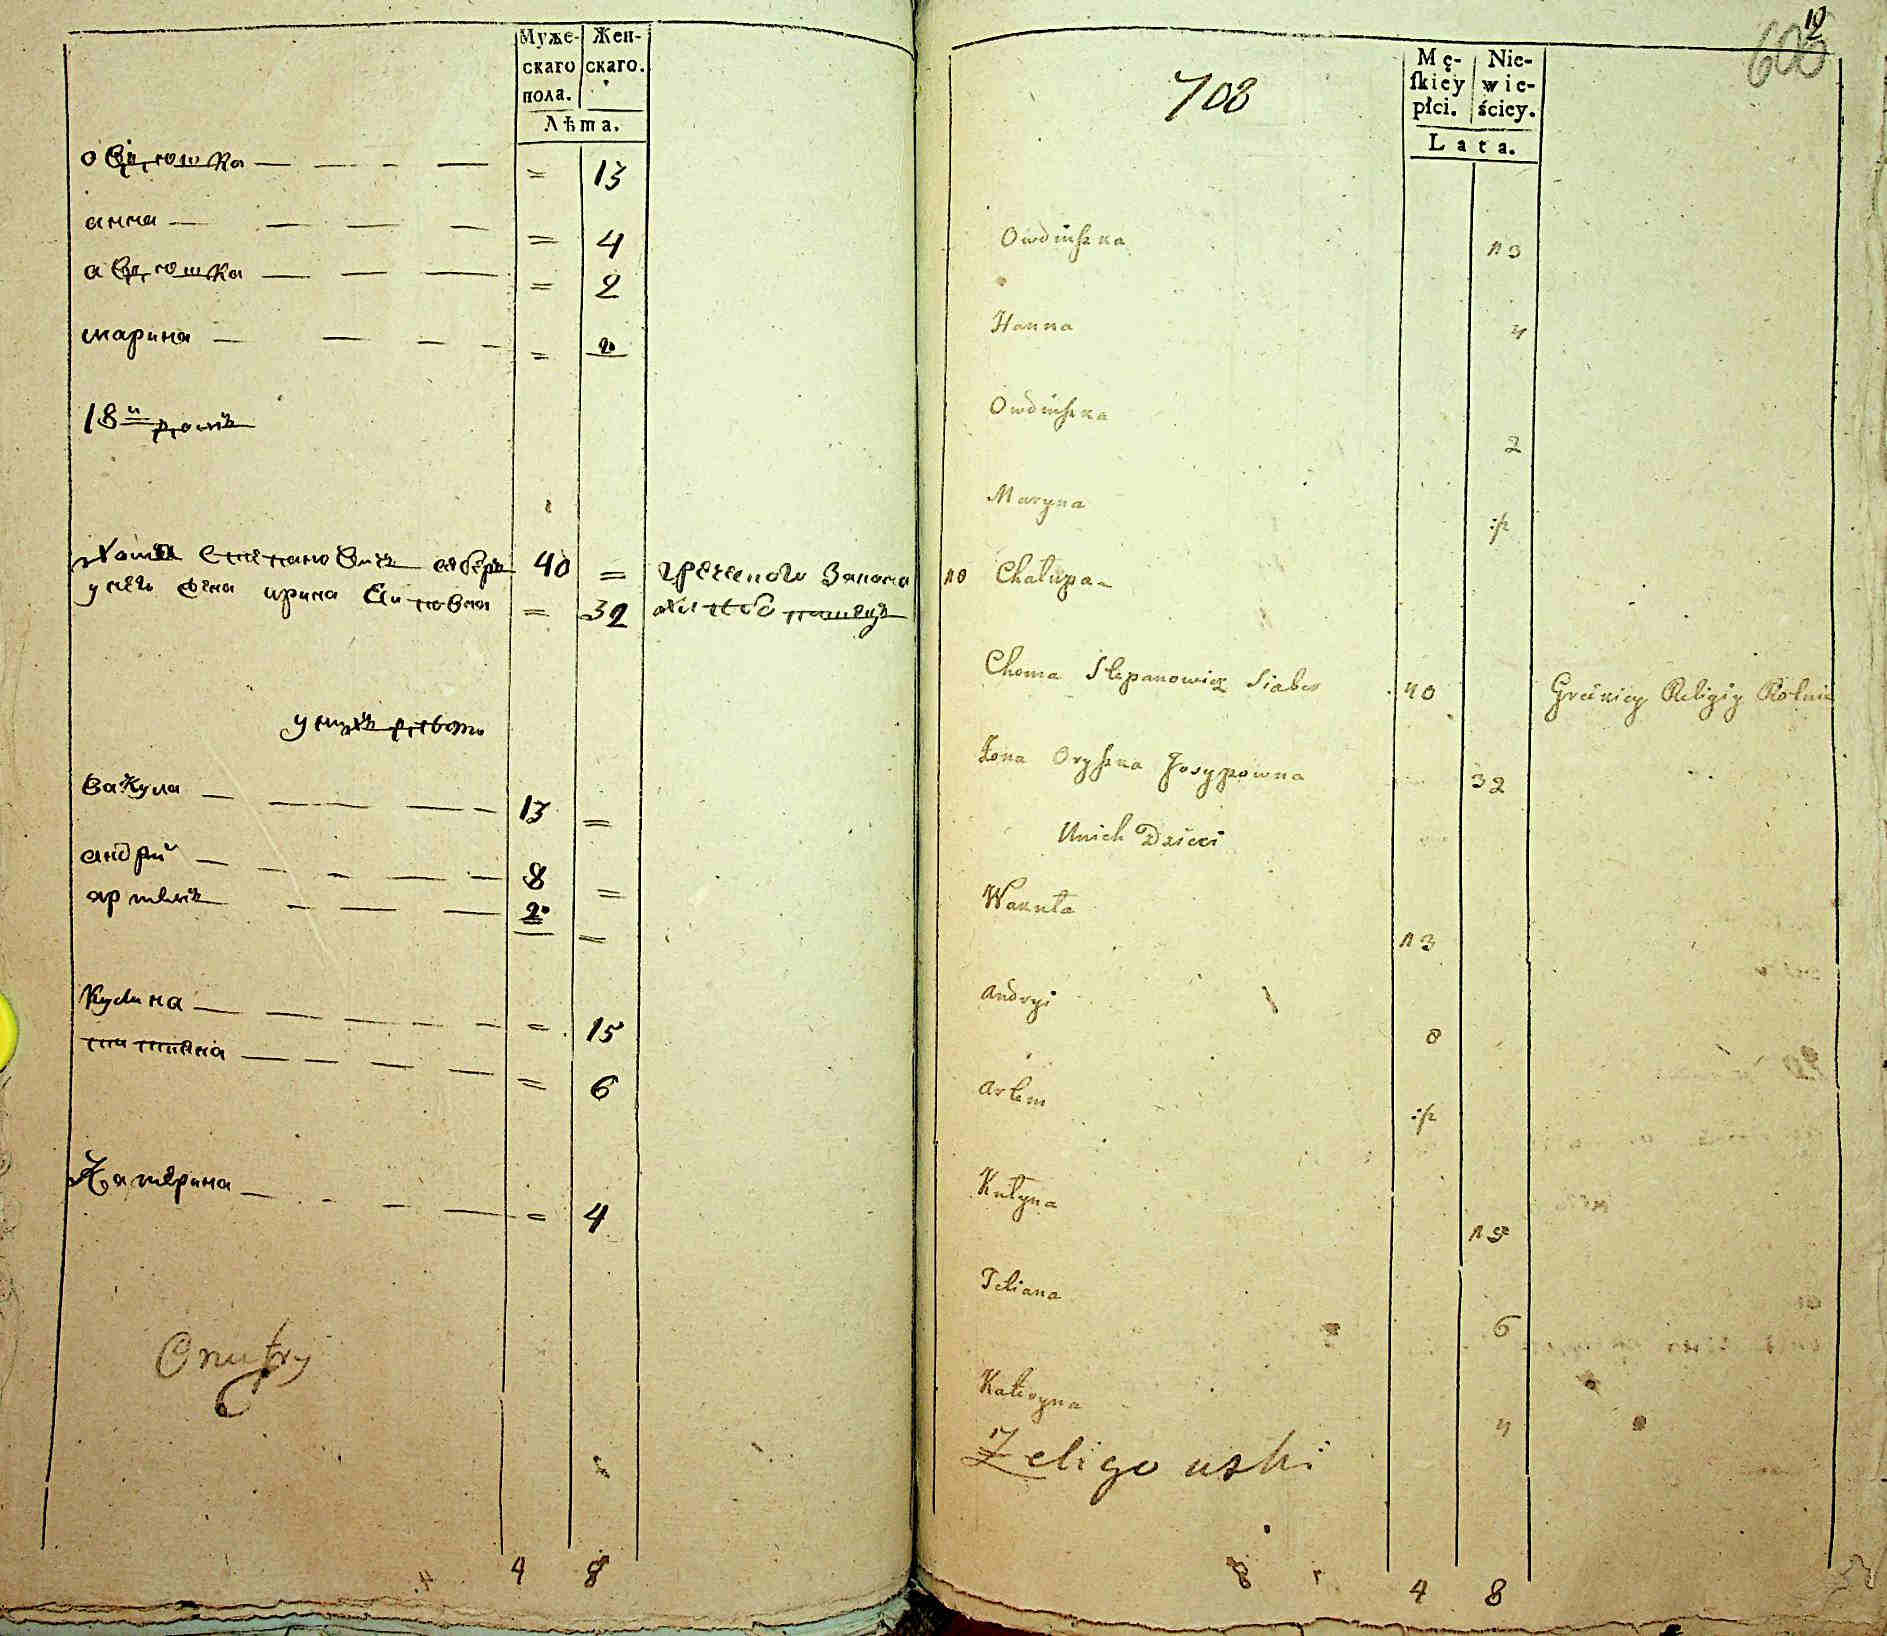 Муже-
скаго
пола.
Жен-
скаго.
Лѣта.
овдюшка = 13
анна = 4
авдюшка = 2
марина = 2
18й домъ
Хома Степановичъ 40 = греческого закона
у него жена ирина = 32
у нихъ детей
вакула 13 =
андрій 8 =
артемъ 2 =
Кулина = 15
татияна = 6
Катерина = 4
Onufry
4 8
703
12
606
Mę-
ſkiey
płci.
Nie-
wie-
ściey.
Lata.
Owdiuszka 13
Hanna 4
Owdiuszka 2
Maryna :/2
18 Chałupa
Choma Stepanowicz Siaber 40 Greckiey Religiy Rolnik
Żona Oryszka Josypowna 32
U nich Dzieci
Wakuła 13
Andryi 8
Artem :/2
Kulyna 15
Tetiana 6
Kateryna 4
Zeligowski
4 8